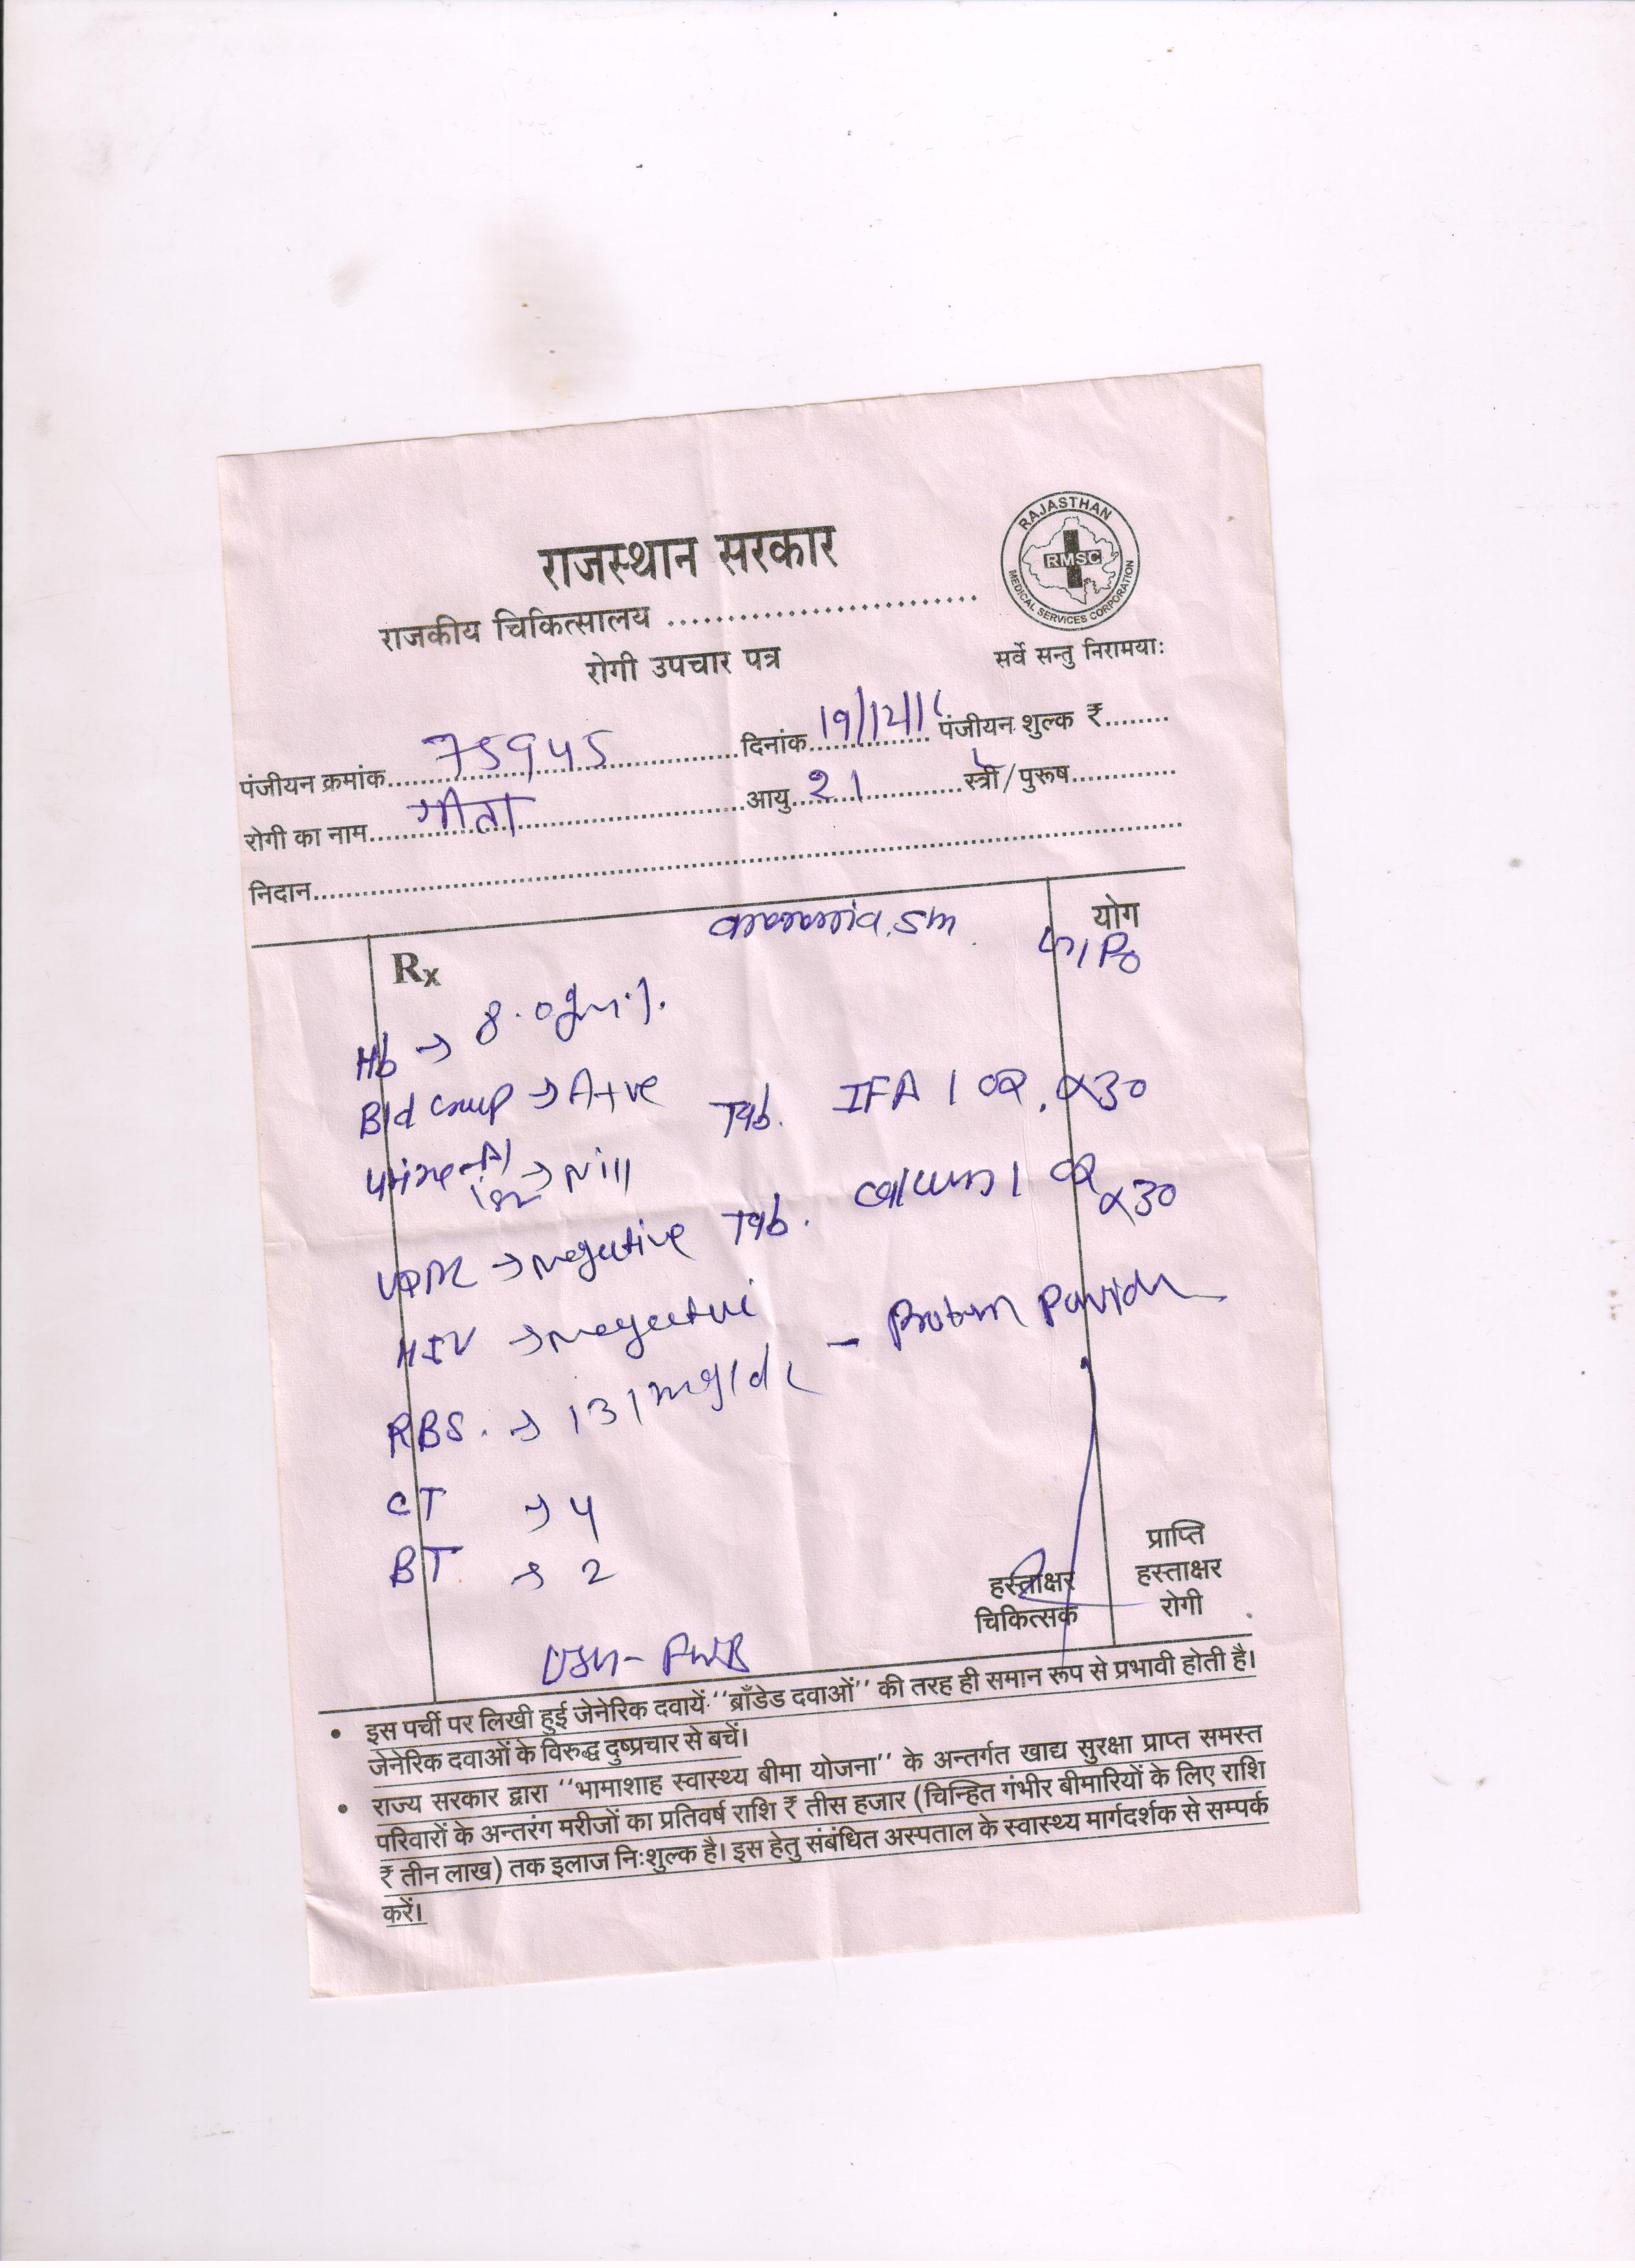 राजस्थान सरकार
RAJASTHAN
RMSC
MEDICAL SERVICES CORPORATION
राजकीय चिकित्सालय ..............................
रोगी उपचार पत्र
सर्वे सन्तु निरामयाः
पंजीयन क्रमांक 75945 दिनांक 19/12/1 पंजीयन शुल्क ₹........
रोगी का नाम गीता आयु 21 स्त्री/पुरूष.............
निदान..............................
योग
Rx
Hb → 8.0gm%.
Bld Group → A+ve Tab. IFA 1 OD. x30
Urine Al → Nill
Tab. Calcium 1 OD x30
VDRL → Negative
HIV → Negective
RBS. → 131 mg/dl - Protein
CT → 4
BT → 2
हस्ताक्षर
चिकित्सक
प्राप्ति
हस्ताक्षर
रोगी
• इस पर्ची पर लिखी हुई जेनेरिक दवायें ''ब्राँडेड दवाओं'' की तरह ही समान रूप से प्रभावी होती है।
जेनेरिक दवाओं के विरूद्ध दुष्प्रचार से बचें।
• राज्य सरकार द्वारा ''भामाशाह स्वास्थ्य बीमा योजना'' के अन्तर्गत खाद्य सुरक्षा प्राप्त समस्त
परिवारों के अन्तरंग मरीजों का प्रतिवर्ष राशि ₹ तीस हजार (चिन्हित गंभीर बीमारियों के लिए राशि
₹ तीन लाख) तक इलाज निःशुल्क है। इस हेतु संबंधित अस्पताल के स्वास्थ्य मार्गदर्शक से सम्पर्क
करें।